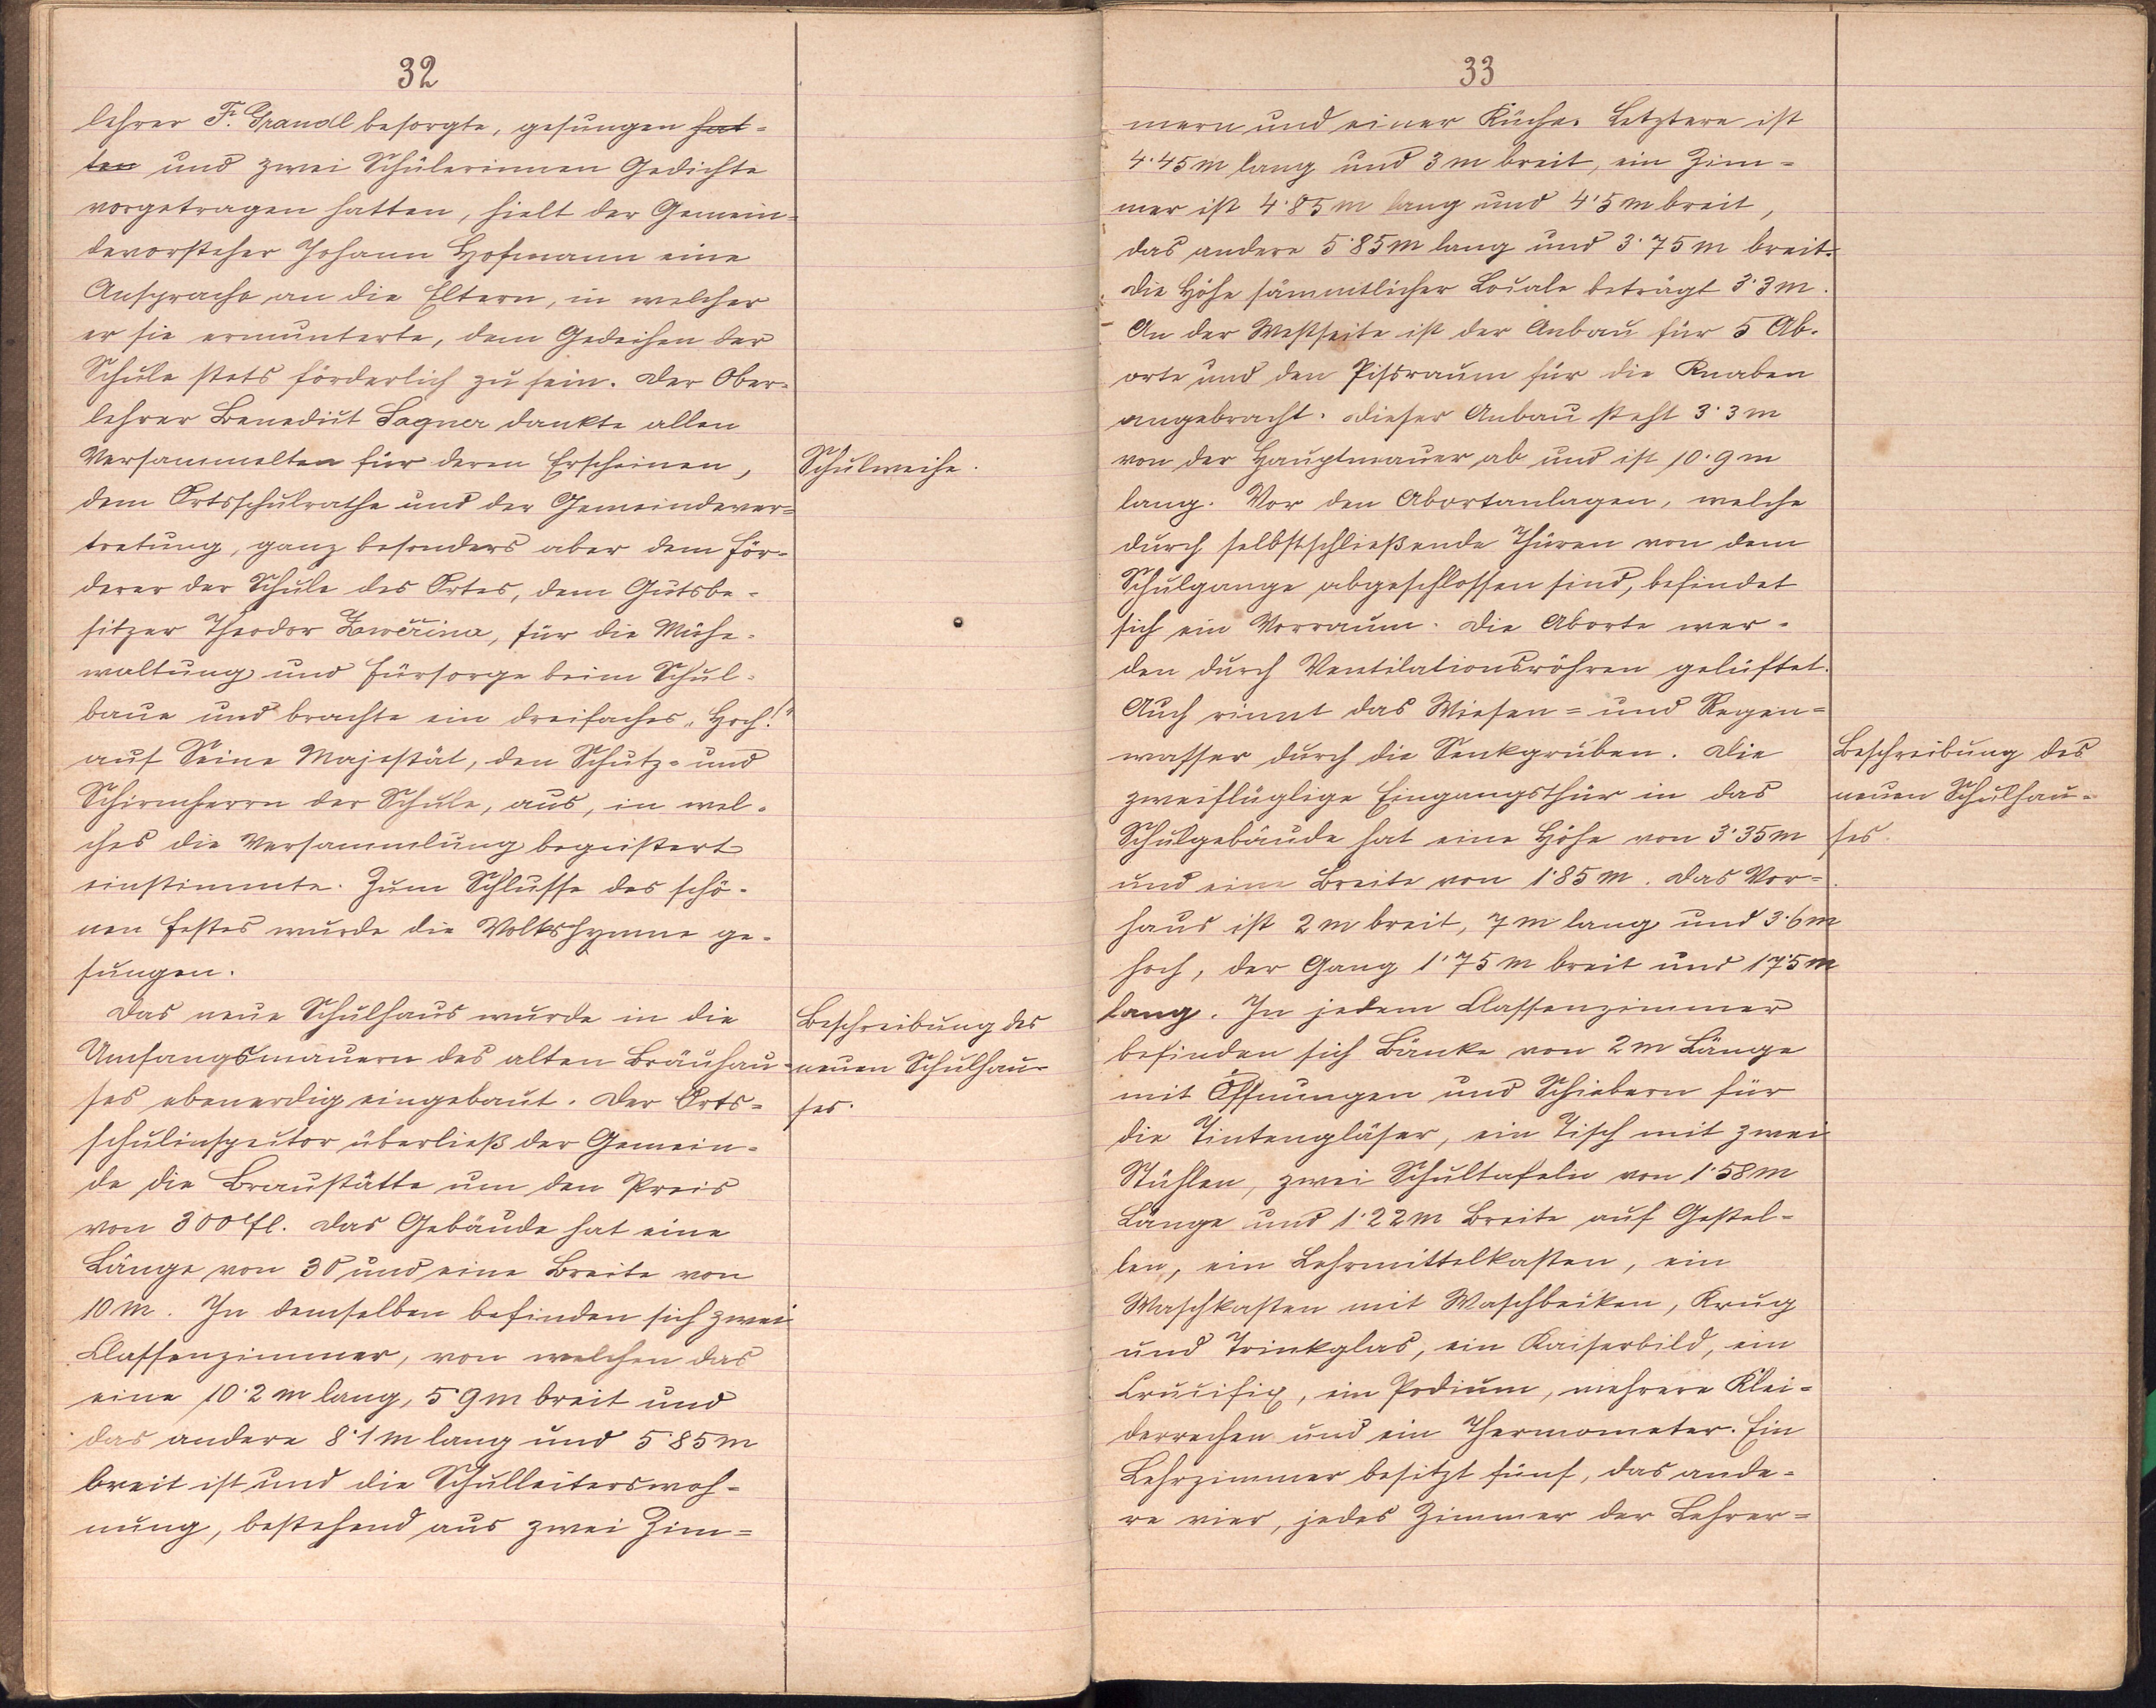 32
lehrer F. Grandl besorgte, gesungen hat-
ten und zwei Schülerinnen Gedichte
vorgetragen hatten, hielt der Gemein-
devorsteher Johann Hofmann eine
Ansprache an die Eltern, in welcher
er sie ermunterte, dem Gedeihen der
Schule stets förderlich zu sein. Der Ober-
lehrer Benedict Sagner dankte allen
Versammelten für deren Erscheinen,
dem Ortsschulrathe und der Gemeindever-
tretung, ganz besonders aber dem För-
derer der Schule des Ortes, dem Gutsbe-
sitzer Theodor Zwěřina, für die Mühe-
waltung und Fürsorge beim Schul-
baue und brachte ein dreifaches „Hoch!"
auf Seine Majestät, den Schutz- und
Schirmherrn der Schule, aus, in wel-
ches die Versammlung begeistert
einstimmte. Zum Schlusse des schö-
nen Festes wurde die Volkshymne ge-
sungen.
Das neue Schulhaus wurde in die
Umfangsmauern des alten Bräuhau-
ses ebenerdig eingebaut. Der Orts-
schulinspector überließ der Gemein-
de die Braustätte um den Preis
von 300 fl. Das Gebäude hat eine
Länge von 30 und eine Breite von
10 m. In demselben befinden sich zwei
Classenzimmer, von welchen das
eine 10·2 m lang, 5·9 m breit und
das andere 8·1 m lang und 5·85 m
breit ist und die Schulleiterswoh-
nung, bestehend aus zwei Zim-
Schulweihe.
Beschreibung des
neuen Schulhau-
ses.
33
mern und einer Küche. Letztere ist
4·45 m lang und 3 m breit, ein Zim-
mer ist 4·85 m lang und 4·5 m breit,
das andere 5·85 m lang und 3·75 m breit.
Die Höhe sämmtlicher Locale beträgt 3·3 m.
An der Westseite ist der Anbau für 5 Ab-
orte und den Pissraum für die Knaben
angebracht. Dieser Anbau steht 3·3 m
von der Hauptmauer ab und ist 10·9 m
lang. Vor den Abortanlagen, welche
durch selbstschließende Thüren von dem
Schulgange abgeschlossen sind, befindet
sich ein Vorraum. Die Aborte wer-
den durch Ventilationsröhren gelüftet.
Auch rinnt das Wiesen- und Regen-
wasser durch die Senkgruben. Die
zweiflüglige Eingangsthür in das
Schulgebäude hat eine Höhe von 3·35 m
und eine Breite von 1·85 m. Das Vor-
haus ist 2 m breit, 7 m lang und 3·6 m
hoch, der Gang 1·75 m breit und 17·5 m
lang. In jedem Classenzimmer
befinden sich Bänke von 2 m Länge
mit Öffnungen und Schiebern für
die Tintengläser, ein Tisch mit zwei
Stühlen, zwei Schultafeln von 1·58 m
Länge und 1·22 m Breite auf Gestel-
len, ein Lehrmittelkasten, ein
Waschkasten mit Waschbecken, Krug
und Trinkglas, ein Kaiserbild, ein
Crucifix, ein Podium, mehrere Klei-
derrechen und ein Thermometer. Ein
Lehrzimmer besitzt fünf, das ande-
re vier, jedes Zimmer der Lehrer-
Beschreibung des
neuen Schulhau-
ses.